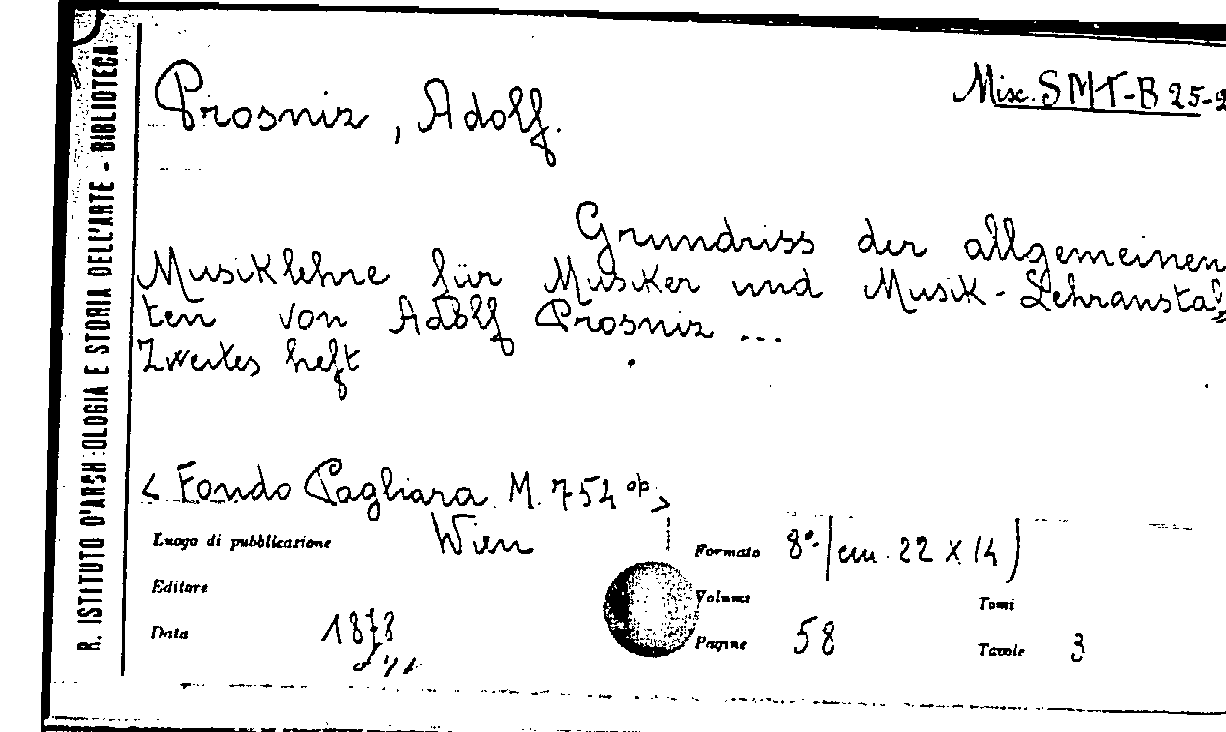 R. ISTITUTO D'ARCHEOLOGIA E STORIA DELL'ARTE - BIBLIOTECA
Prosniz, Adolf.
Misc. SMT-B 25-2
Grundriss der allgemeinen
Musiklehre für Musiker und Musik-Lehranstal„
ten von Adolf Prosniz ...
Zweites heft
< Fondo Pagliara M. 754 op. >
Luogo di pubblicazione Wien
Formato 8º-(cm. 22 X 14)
Editore
Volume
Tomi
Data 1878
Pagine 58
Tavole 3